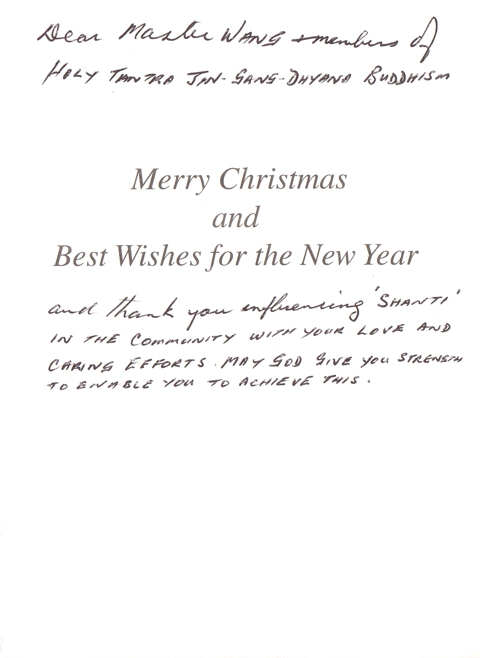 Dear Master WANG + members of
HOLY TANTRA JIN-GANG-DHYANA BUDDHISM
Merry Christmas
and
Best Wishes for the New Year
and thank you influencing 'SHANTI'
IN THE COMMUNITY WITH YOUR LOVE AND
CARING EFFORTS. MAY GOD GIVE YOU STRENGTH
TO ENABLE YOU TO ACHIEVE THIS.